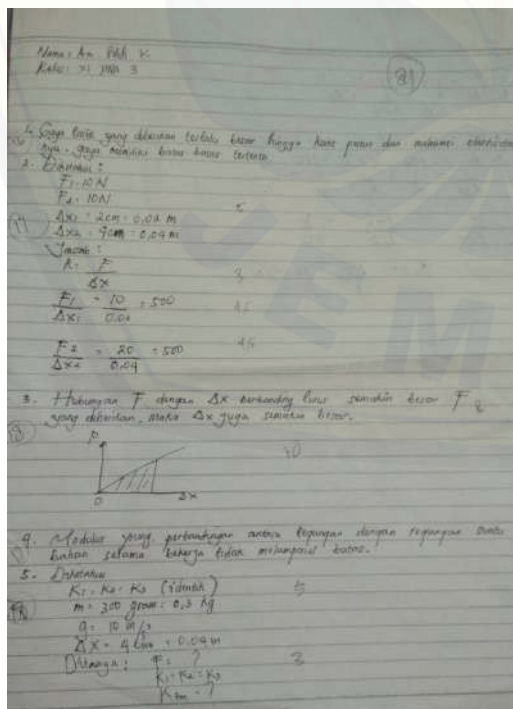 Nama : An
Kelas : XI MIA 3
81
1. Gaya tarik yang diberikan terlalu besar hingga karet putus dan
nya. gaya memiliki batas-batas tertentu
2. Diketahui :
F1 = 10N
F2 = 10N
5
Δx1 = 2cm = 0,02 m
17
Δx2 = 4cm = 0,04 m
Jawab :
k = F
Δx
3
F1 = 10 = 500
Δx1 0.02
45
F2 = 20 = 500
Δx2 0.04
45
3. Hubungan F dengan Δx berbanding lurus semakin besar F
yang diberikan, maka Δx juga semakin besar.
10
0 Δx
4. Modulus young perbandingan antara tegangan dengan regangan suatu
bahan selama bekerja tidak melampaui batas.
5. Diketahui
K1 = K2 = K3 (identik)
5
m = 300 gram = 0,3 kg
g = 10 m/s
Δx = 4 cm = 0.04 m
Ditanya : F = ?
3
K1 = K2 = K3
= ?
JEM